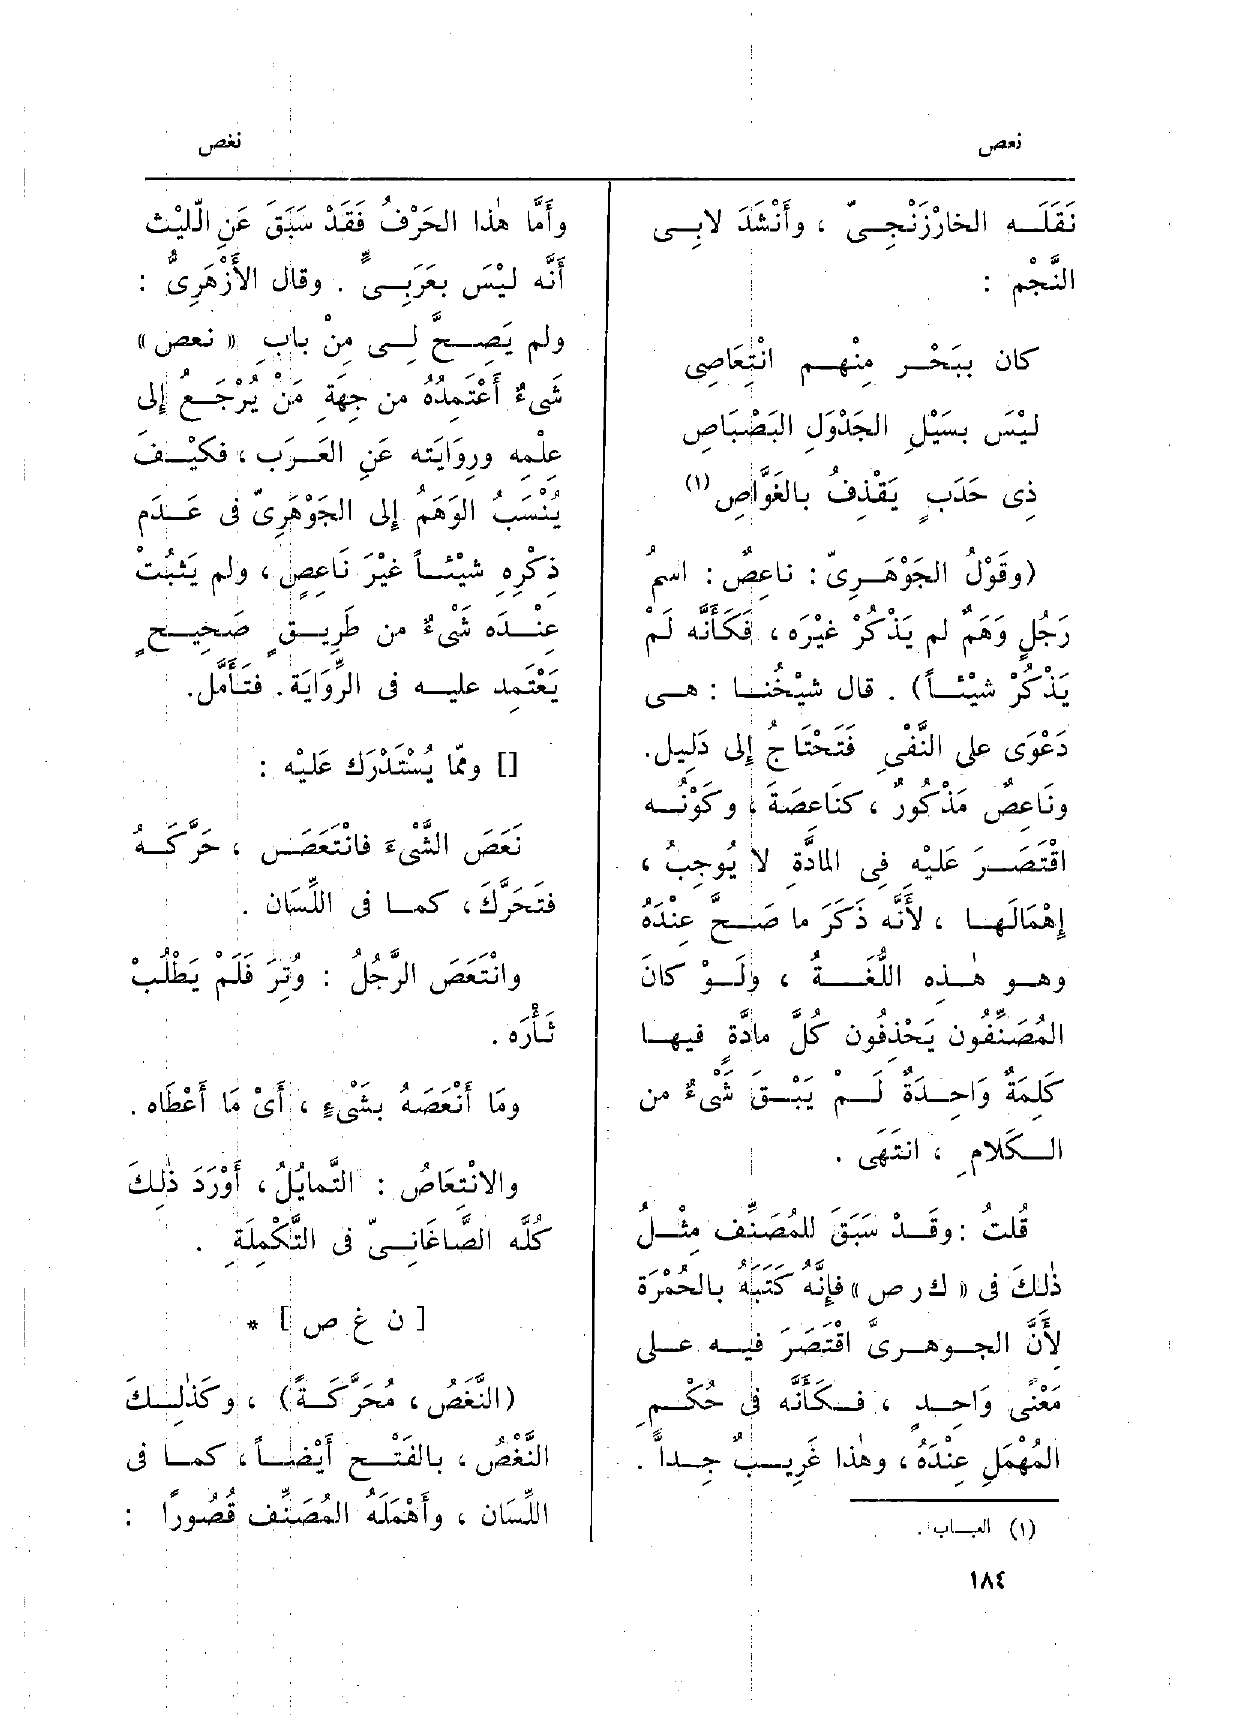 نعص
نغص
نَقَلَـه الخَارْزَنْجِـىّ ، وأَنْشَدَ لابِـى
النَّجْم :
كان بِبَحْـر مِنْهـم انْتِعَاصِى
لَيْسَ بسَيْلِ الجَدْوَلِ البَضْبَاصِ
ذِى حَدَبٍ يَقْذِفُ بالغَوَّاصِ (١)
(وقَوْلُ الجَوْهَـرِىّ : ناعِصٌ : اسمُ
رَجُلٍ وَهَمٌ لم يَذْكُرْ غيْرَه ، فكَأَنَّه لَمْ
يَذْكُرْ شَيْئـاً) . قال شَيْخُنـا : هـى
دَعْوَى على النَّفْىِ فَتَحْتَاجُ إِلى دَلِيل.
ونَاعِصٌ مَذْكُورٌ ، كنَاعِصَةَ ، وكَوْنُـه
اقْتَصَـرَ عَلَيْه فى المَادَّةِ لا يُوجِبُ ،
إِهْمَالَهـا ، لأَنَّه ذَكَرَ ما صَـحَّ عِنْدَهُ
وهـو هٰـذِه اللُّغَـةُ ، ولَـوْ كانَ
المُصَنِّفُون يَحْذِفُون كُلَّ مادَّةٍ فيهـا
كَلِمَةٌ وَاحِـدَةٌ لَـمْ يَبْـقَ شَىْءٌ من
الـكَلامِ ، انتَهَى .
قلتُ : وقَـدْ سَبَقَ للمُصَنِّفِ مثْـلُ
ذٰلكَ فى «ك ر ص» فإِنَّهُ كَتَبَهُ بالحُمْرَة
لأَنَّ الجـوهـرىَّ اقْتَصَرَ فيـه عـلى
مَعْنًى وَاحِـدٍ ، فـكأَنَّه فى حُكْـمِ
المُهْمَلِ عِنْدَهُ ، وهٰذا غَرِيـبٌ جِـدًّا .
(١) العبـاب .
١٨٤
وأَمَّا هٰذا الحَرْفُ فَقَدْ سَبَقَ عَنِ اللَّيْثِ
أَنَّه لَيْسَ بعَرَبِـىٍّ . وقال الأَزْهَرِىُّ :
ولم يَصِـحَّ لِـى مِنْ بابِ « نعص »
شَىْءٌ أَعْتَمِدُهُ من جِهَةِ مَنْ يُرْجَـعُ إِلى
عِلْمِه ورِوَايَتِه عَنِ العَـرَبِ ، فكَيْـفَ
يُنْسَبُ الوَهَمُ إِلى الجَوْهَرِىّ فى عَـدَمِ
ذِكْرِهِ شَيْئـاً غَيْرَ نَاعِصٍ ، ولم يَثْبُتْ
عِنْـدَه شَىْءٌ من طَرِيـقٍ صَحِيـحٍ
يَعْتَمِد عليـه فى الرِّوَايَة. فتَأَمَّل.
[] وممّا يُسْتَدْرَك عَلَيْه :
نَعَصَ الشَّىْءَ فانْتَعَصَ ، حَرَّكَـهُ
فتَحَرَّكَ ، كمـا فى اللِّسَان .
وانْتَعَصَ الرَّجُلُ : وُتِرَ فَلَمْ يَطْلُبْ
ثَـأْرَه .
ومَا أَنْعَصَهُ بشَىْءٍ ، أَىْ مَا أَعْطَاه .
والانْتِعَاصُ : التَّمَايُلُ ، أَوْرَدَ ذٰلِكَ
كُلَّه الصَّاغَانِـىّ فى التَّكْمِلَةِ .
[ ن غ ص ] *
(النَّغَصُ ، مُحَرَّكَـةً) ، وكَذٰلِـكَ
النَّغْصُ ، بالفَتْـحِ أَيْضـاً ، كمـا فى
اللِّسَان ، وأَهْمَلَهُ المُصَنِّفُ قُصُورًا :